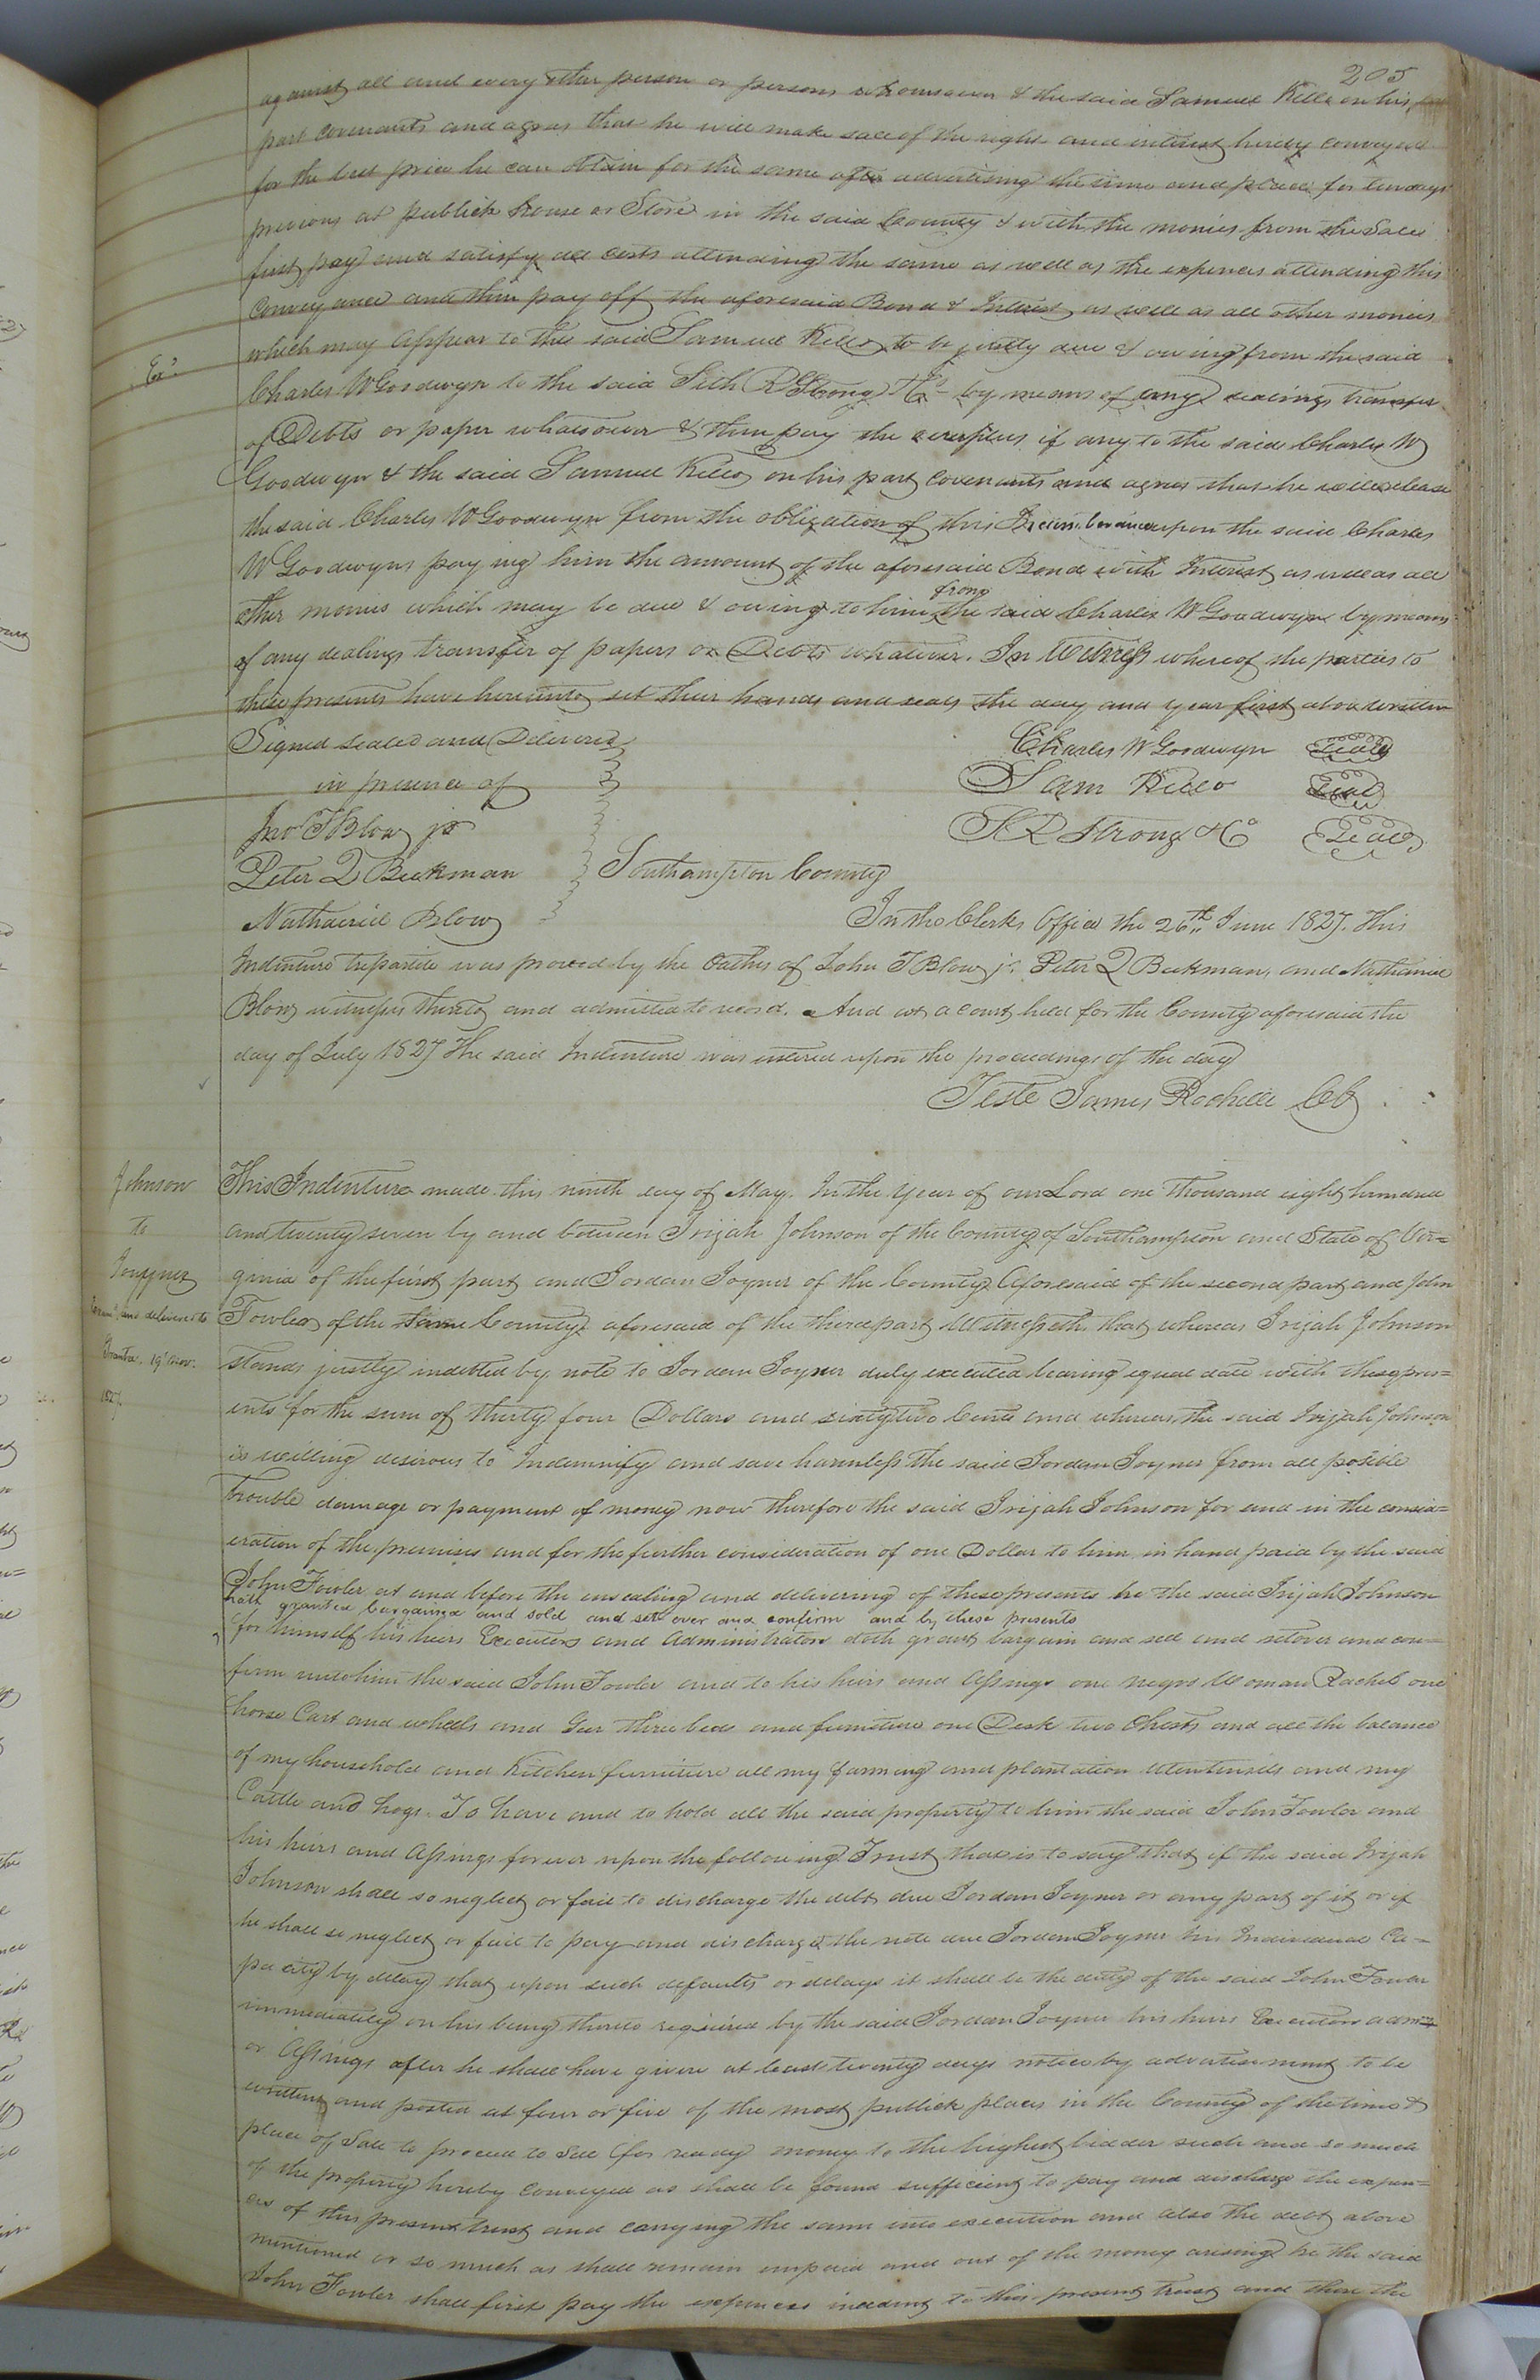 205
against all and every other person or persons whomsoever & the said Samuel Kello on his
part covenants and agrees that he will make sale of the right and interest hereby conveyed
for the best price he can obtain for the same after advertising the time and place for ten days
previous at publick house or Store in the said County & with the monies from the Sale
first pay and satisfy all costs attending the same as well as the expences attending this
Conveyance and then pay off the aforesaid Bond & Interest as well as all other monies
which may Appear to the said Samuel Kello to be justly due & owing from the said
Exd
Charles W Goodwyn to the said Sith R Strong & Co by means of any dealings transfer
of Debts or paper whatsoever & then pay the overplus if any to the said Charles W
Goodwyn & the said Samuel Kello on his part covenants and agrees that he will release
the said Charles W Goodwyn from the obligation of this Incumbrance upon the said Charles
W Goodwyns paying him the amount of the aforesaid Bond with Interest as well as all
from
other monies which may be due & owing to him the said Charles W Goodwyn by means
of any dealings transfer of papers or Debts whatever. In Witness whereof the parties to
these presents have hereunto set their hands and seals the day and year first above written
Signed sealed and Delivered Charles W Goodwyn Seal
in presence of Sam Kello Seal
Jno T Blow jr S R Strong & Co Seal
Peter Q Beekman Southampton County
Nathaniel Blow In the Clerks Office the 26th June 1827. This
Indenture tripartite was proved by the Oaths of John T Blow jr. Peter Q Beekman, and Nathaniel
Blow witnesses thereto and admitted to record. And at a Court held for the County aforesaid the
day of July 1827 The said Indenture was entered upon the proceedings of the day
Teste James Rochelle CC
Johnson
to
Joyner
and delivered to
19 Nov.
1827.
This Indenture made this ninth day of May. In the Year of our Lord one thousand eight hundred
and twenty seven by and between Irijah Johnson of the County of Southampton and State of Vir=
ginia of the first part and Jordan Joyner of the County Aforesaid of the second part and John
Fowler of the Same County aforesaid of the third part Witnesseth that whereas Irijah Johnson
stands justly indebted by note to Jordan Joyner duly executed bearing equal date with these pres=
ents for the sum of thirty four Dollars and sixty two Cents and whereas the said Irijah Johnson
is willing desirous to Indemnify and save harmless the said Jordan Joyner from all posible
trouble damage or payment of money now therefore the said Irijah Johnson for and in the consid=
eration of the premises and for the further consideration of one Dollar to him in hand paid by the said
John Fowler at and before the ensealing and delivering of these presents he the said Irijah Johnson
hath granted bargained and sold and set over and confirm and by these presents
for himself his heirs Executors and Administrators doth grant bargain and sell and setover and con=
firm unto him the said John Fowler and to his heirs and Assings one negro Woman Rachel one
horse Cart and wheels and Gear three beds and furniture one Desk two Chests and all the balance
of my household and Kitchen furniture all my farming and plantation utentinsils and my
Cattle and hogs. To have and to hold all the said property to him the said John Fowler and
his heirs and Assings forever upon the following Trust that is to say that if the said Irijah
Johnson shall so neglect or fail to discharge the debt due Jordan Joyner or any part of it or if
he shall so neglect or fail to pay and discharge the note due Jordan Joyner his Individual Ca=
pacity by delay that upon such defaults or delays it shall be the duty of the said John Fowler
immediately on his being thereto required by the said Jordan Joyner his heirs Executors admrs
or Assings after he shall have given at least twenty days notice by advertisement to be
written and posted at four or five of the most publick places in the County of the time &
place of Sale to proceed to Sell for ready money to the highest bidder such and so much
of the property hereby conveyed as shall be found sufficient to pay and discharge the expen=
ces of this present trust and carrying the same into execution and also the debt above
mentioned or so much as shall remain unpaid and out of the money arising he the said
John Fowler shall first pay the expences incident to this present trust and then the